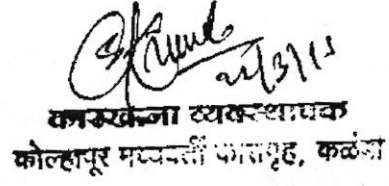 22/3/15
कारखाना व्यवस्थापक
कोल्हापूर मध्यवर्ती कारागृह, कळंबा